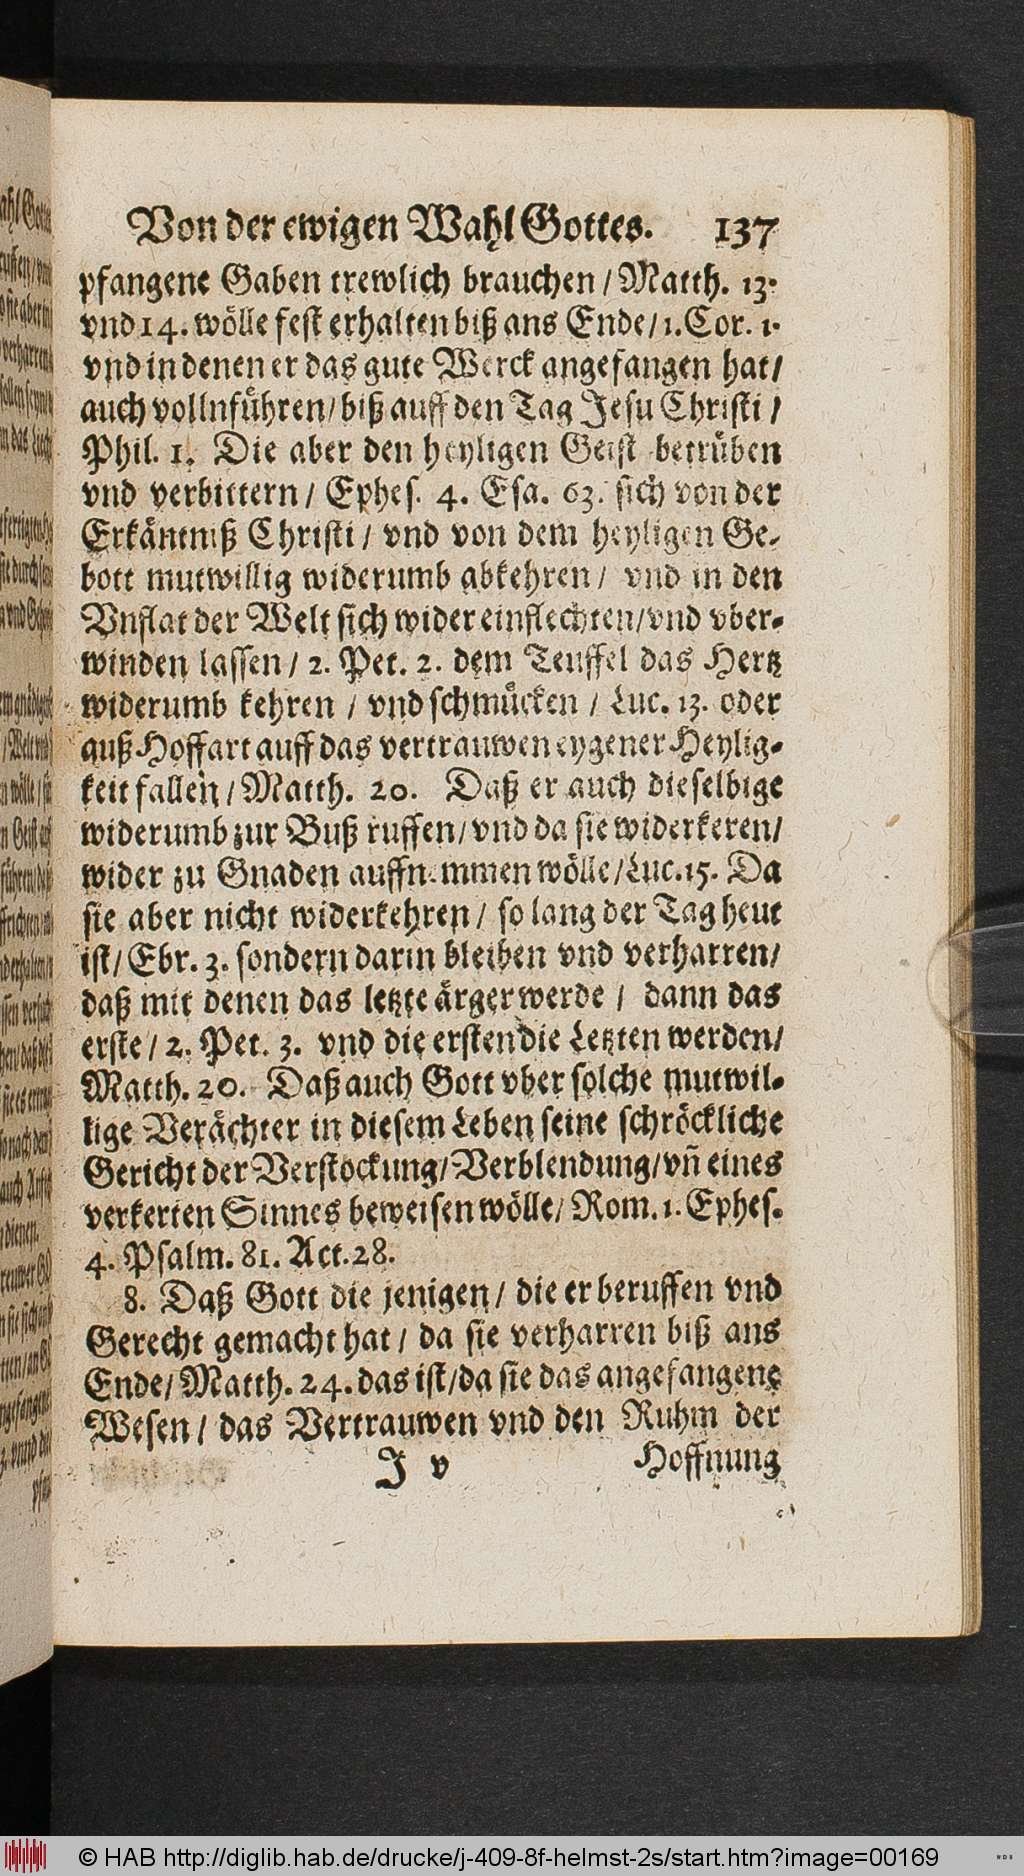 Von der ewigen Wahl Gottes. 137
pfangene Gaben trewlich brauchen / Matth. 13.
vnd 14. wölle fest erhalten biß ans Ende / 1. Cor. 1.
vnd in denen er das gute Werck angefangen hat /
auch vollnführen / biß auff den Tag Jesu Christi /
Phil. 1. Die aber den heyligen Geist betrüben
vnd verbittern / Ephes. 4. Esa. 63. sich von der
Erkäntniß Christi / vnd von dem heyligen Ge-
bott mutwillig widerumb abkehren / vnd in den
Vnflat der Welt sich wider einflechten / vnd vber-
winden lassen / 2. Pet. 2. dem Teuffel das Hertz
widerumb kehren / vnd schmücken / Luc. 13. oder
auß Hoffart auff das vertrauwen eygener Heylig-
keit fallen / Matth. 20. Daß er auch dieselbige
widerumb zur Buß ruffen / vnd da sie widerkeren /
wider zu Gnaden auffnemmen wölle / Luc. 15. Da
sie aber nicht widerkehren / so lang der Tag heut
ist / Ebr. 3. sondern darin bleiben vnd verharren /
daß mit denen das letzte ärger werde / dann das
erste / 2. Pet. 3. vnd die ersten die Letzten werden /
Matth. 20. Daß auch Gott vber solche mutwil-
lige Verächter in diesem Leben seine schröckliche
Gericht der Verstockung / Verblendung / vñ eines
verkerten Sinnes beweisen wölle / Rom. 1. Ephes.
4. Psalm. 81. Act. 28.
8. Daß Gott die jenigen / die er beruffen vnd
Gerecht gemacht hat / da sie verharren biß ans
Ende / Matth. 24. das ist / da sie das angefangene
Wesen / das Vertrauwen vnd den Ruhm der
J v Hoffnung
© HAB http://diglib.hab.de/drucke/j-409-8f-helmst-2s/start.htm?image=00169